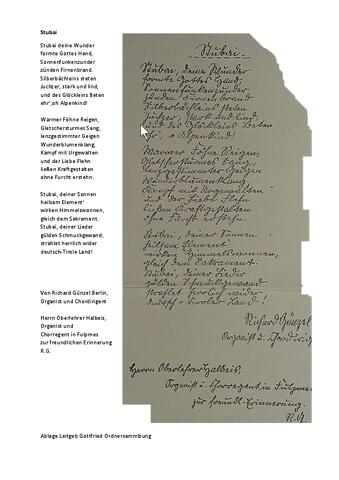 Stubai
Stubai deine Wunder
formte Gottes Hand,
Sonnerfunkenzunder
zünden Firnenbrand.
Silberbächleins steten
Juchzer, stark und lind,
und des Glöckleins Beten
ehr',oh Alpenkind!
Warmer Föhne Reigen,
Gletschersturmes Sang,
lenzgestimmter Geigen
Wunderblumenklang,
Kampf mit Urgewalten
und der Liebe Flehn
ließen Kraftgestalten
ohne Furcht erstehn.
Stubai, deiner Sonnen
heilsam Element'
wirken Himmelswonnen,
gleich dem Sakrament.
Stubai, deine Lieder
gülden Schmuckgewand,
strahlet herrlich wider
deutsch-Tirole Land!
Von Richard Günzel Berlin,
Organist und Chordirigent
Herrn Oberlehrer Halbeis,
Organist und
Chorregent in Fulpmes
zur freundlichen Erinnerung
R.G.
Stubai.
Stubai, deine Wunder
formte Gottes Hand,
Sonnenfunkenzunder
zünden Firnenbrand.
Silberbächleins steten
Juchzer, stark und lind
und des Glöckleins Beten
ehr', o Alpenkind!
Warmer Föhne Reigen,
Gletschersturmes Sang,
lenzgestimmter Geigen
Wunderblumenklang
Kampf mit Urgewalten
und der Liebe Flehn
ließen Kraftgestalten
ohne Furcht erstehn.
Stubai, deiner Sonnen
heilsam Element
wirken Himmelswonnen,
gleich dem Sakrament.
Stubai, deiner Lieder
gülden Schmuckgewand
strahlet herrlich wider
deutsch-Tiroler Land!
Richard Günzel
Organist u. Chordirig
Herrn Oberlehrer Halbeis,
Organist u. Chorregent in Fulpmes
zur freundl. Erinnerung.
R.G.
Ablage Leitgeb Gottfried Ordnersammlung